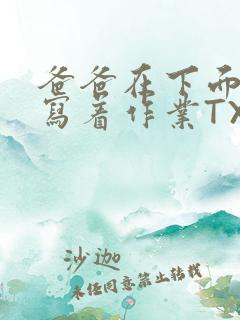 爸爸在下而
寫着作業TX
沙迦
未任同意禁止转载